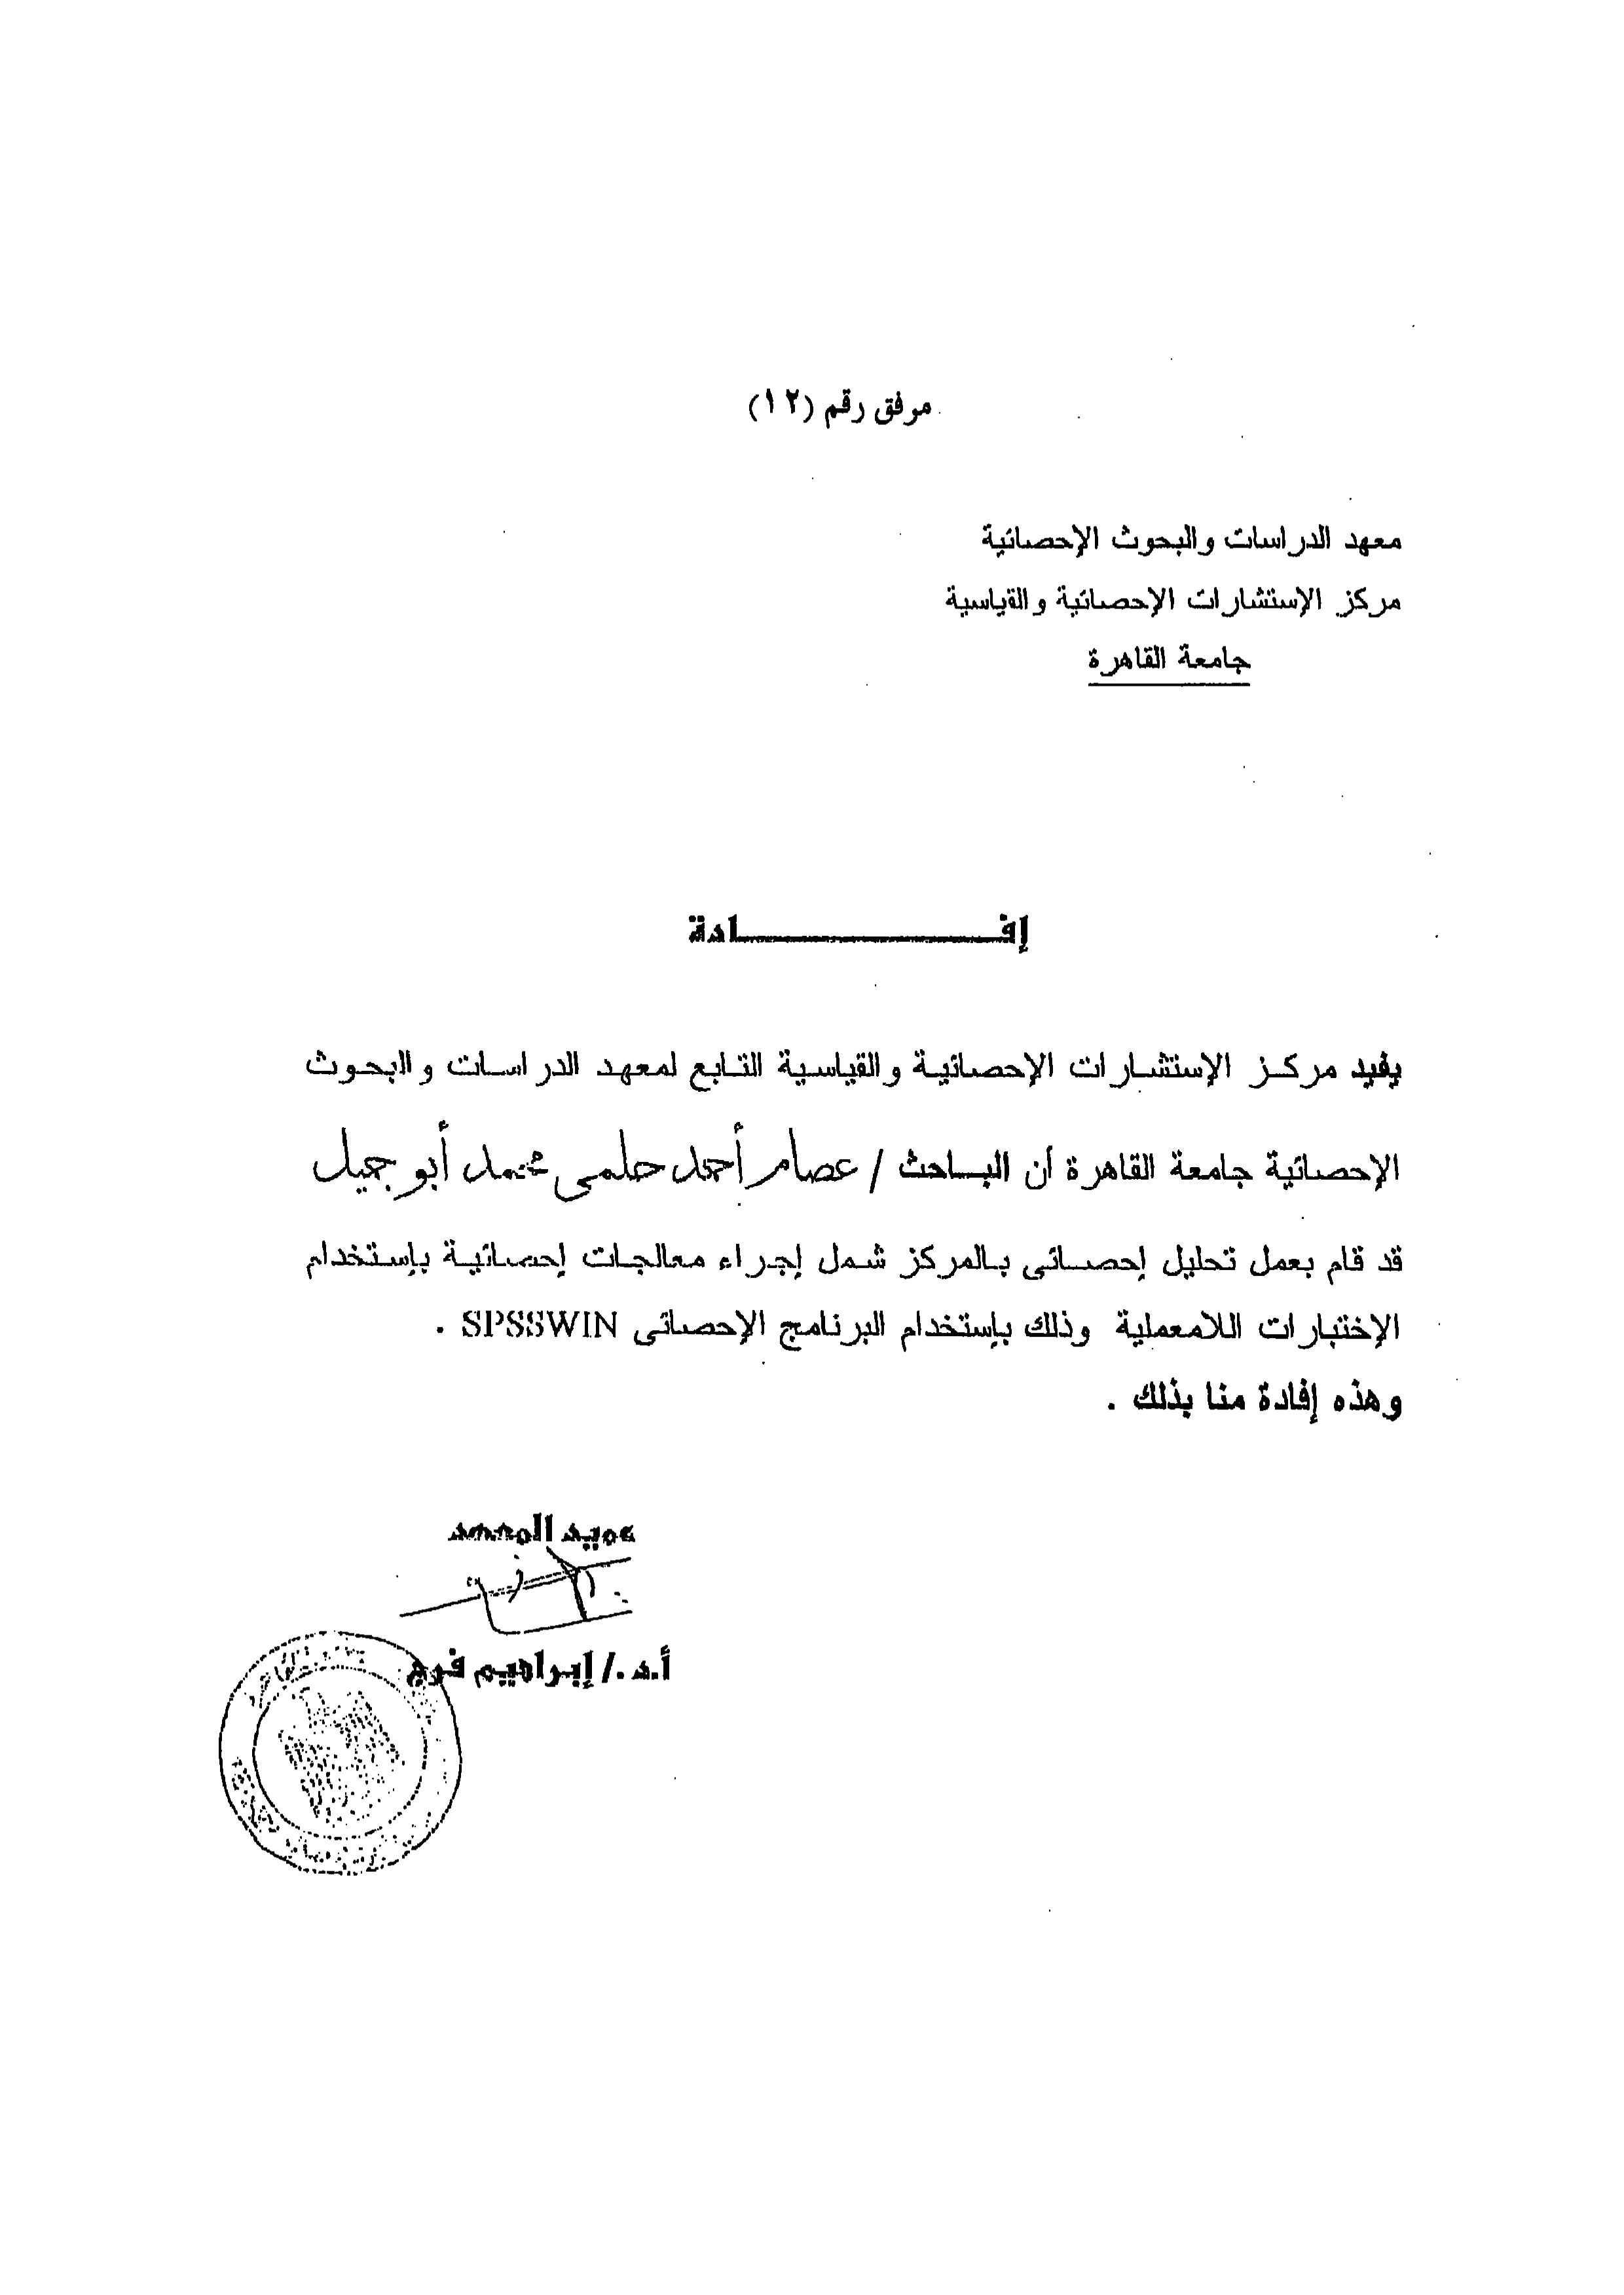 موفق رقم (١٢)
معهد الدراسات والبحوث الإحصائية
مركز الإستشارات الإحصائية والقياسية
جامعة القاهرة
إفــــــــــادة
يفيد مركز الإستشارات الإحصائية والقياسية التابع لمعهد الدراسات والبحوث
الإحصائية جامعة القاهرة أن الباحث / عصام أحمد حلمى محمد أبو جميل
قد قام بعمل تحليل إحصائى بالمركز شمل إجراء معالجات إحصائية بإستخدام
الإختبارات اللامعملية وذلك بإستخدام البرنامج الإحصائى SPSSWIN .
وهذه إفادة منا بذلك .
عميد المعهد
أ.د./ إبراهيم فرج